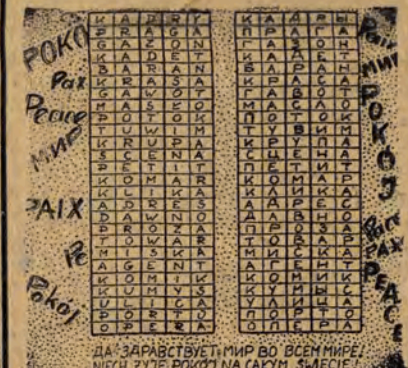 POKÓ
Pax
Peace
МИР
PAIX
Pe
Pokój
KADRY
PRAGA
GAZON
KADET
BARAN
KRASA
GAWOT
MASŁO
POTOK
TUWIM
KRUPA
SCENA
PETIT
KOMAR
KLIKA
ADRES
DAWNO
PROZA
TOWAR
MISKA
AGENT
KOMIK
KUMYS
ULICA
PORTO
OPERA
КАДРЫ
ПРАГА
ГАЗОН
КАДЕТ
БАРАН
КРАСА
ГАВОТ
МАСЛО
ПОТОК
ТУВИМ
КРУПА
СЦЕНА
ПЕТИТ
КОМАР
КЛИКА
АДРЕС
ДАВНО
ПРОЗА
ТОВАР
МИСКА
АГЕНТ
КОМИК
КУМЫС
УЛИЦА
ПОРТО
ОПЕРА
МИР
POKÓJ
PAX
PEACE
ДА ЗДРАВСТВУЕТ МИР ВО ВСЕМ МИРЕ!
NIECH ŻYJE POKÓJ NA CAŁYM ŚWIECIE!